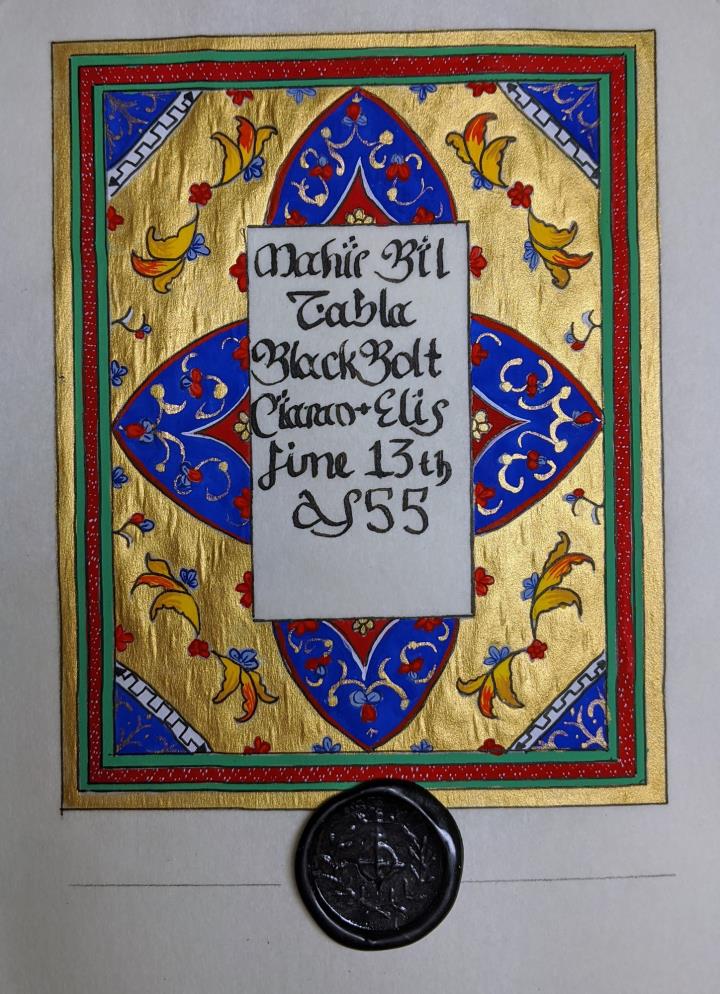 Mahiir Bil
Tabla
BlackBolt
Ciaran + Elis
June 13th
AS 55